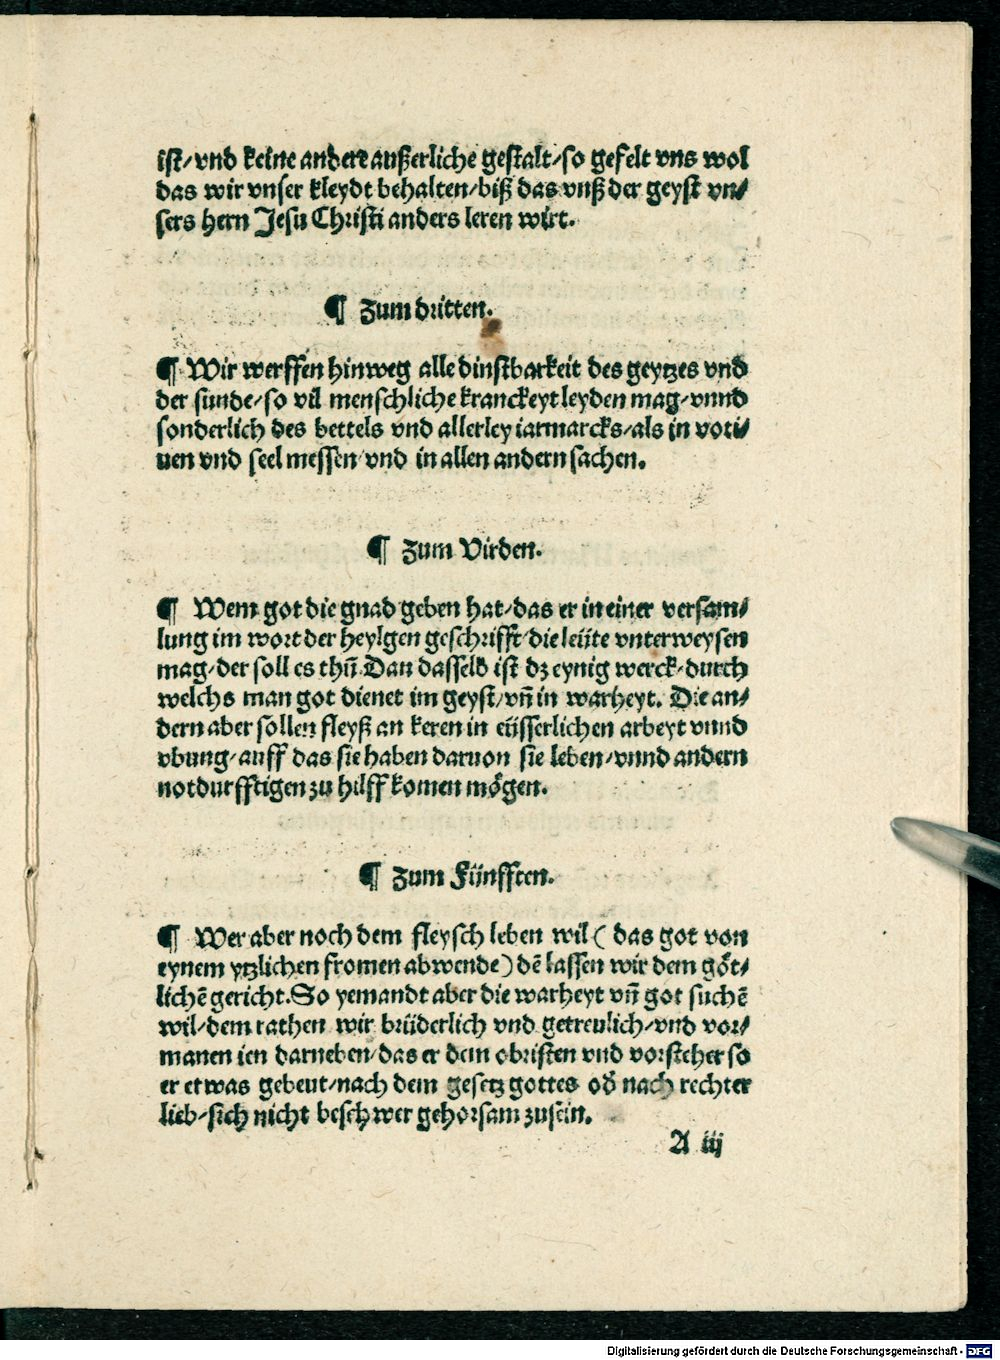 ist/vnd keine andere außerliche gestalt/so gefelt vns wol
das wir vnser kleydt behalten/biß das vnß der geyst vn/
sers hern Jesu Christi anders leren wirt.
¶ Zum dritten.
¶ Wir werffen hinweg alle dinstbarkeit des geytzes vnd
der sunde/so vil menschliche kranckeyt leyden mag/vnnd
sonderlich des bettels vnd allerley iarmarcks/als in voti/
uen vnd seel messen/vnd in allen andern sachen.
¶ Zum Virden.
¶ Wem got die gnad geben hat/das er in einer versam/
lung im wort der heylgen geschrifft/die leüte vnterweysen
mag/der soll es thū. Dan dasselb ist dz eynig werck/durch
welchs man got dienet im geyst/vn̄ in warheyt. Die an/
dern aber sollen fleyß an keren in eüsserlichen arbeyt vnnd
vbung/auff das sie haben daruon sie leben/vnnd andern
notdurfftigen zu hilff komen mögen.
¶ Zum Fünfften.
¶ Wer aber noch dem fleysch leben wil ( das got von
eynem ytzlichen fromen abwende) dē lassen wir dem göt/
lichē gericht. So yemandt aber die warheyt vn̄ got suchē
wil/dem rathen wir brüderlich vnd getreulich/vnd vor/
manen ien darneben/das er dem obristen vnd vorsteher so
er etwas gebeut/nach dem gesetz gottes od̛ nach rechter
lieb/sich nicht beschwer gehorsam zusein.
A iij
Digitalisierung gefördert durch die Deutsche Forschungsgemeinschaft - DFG